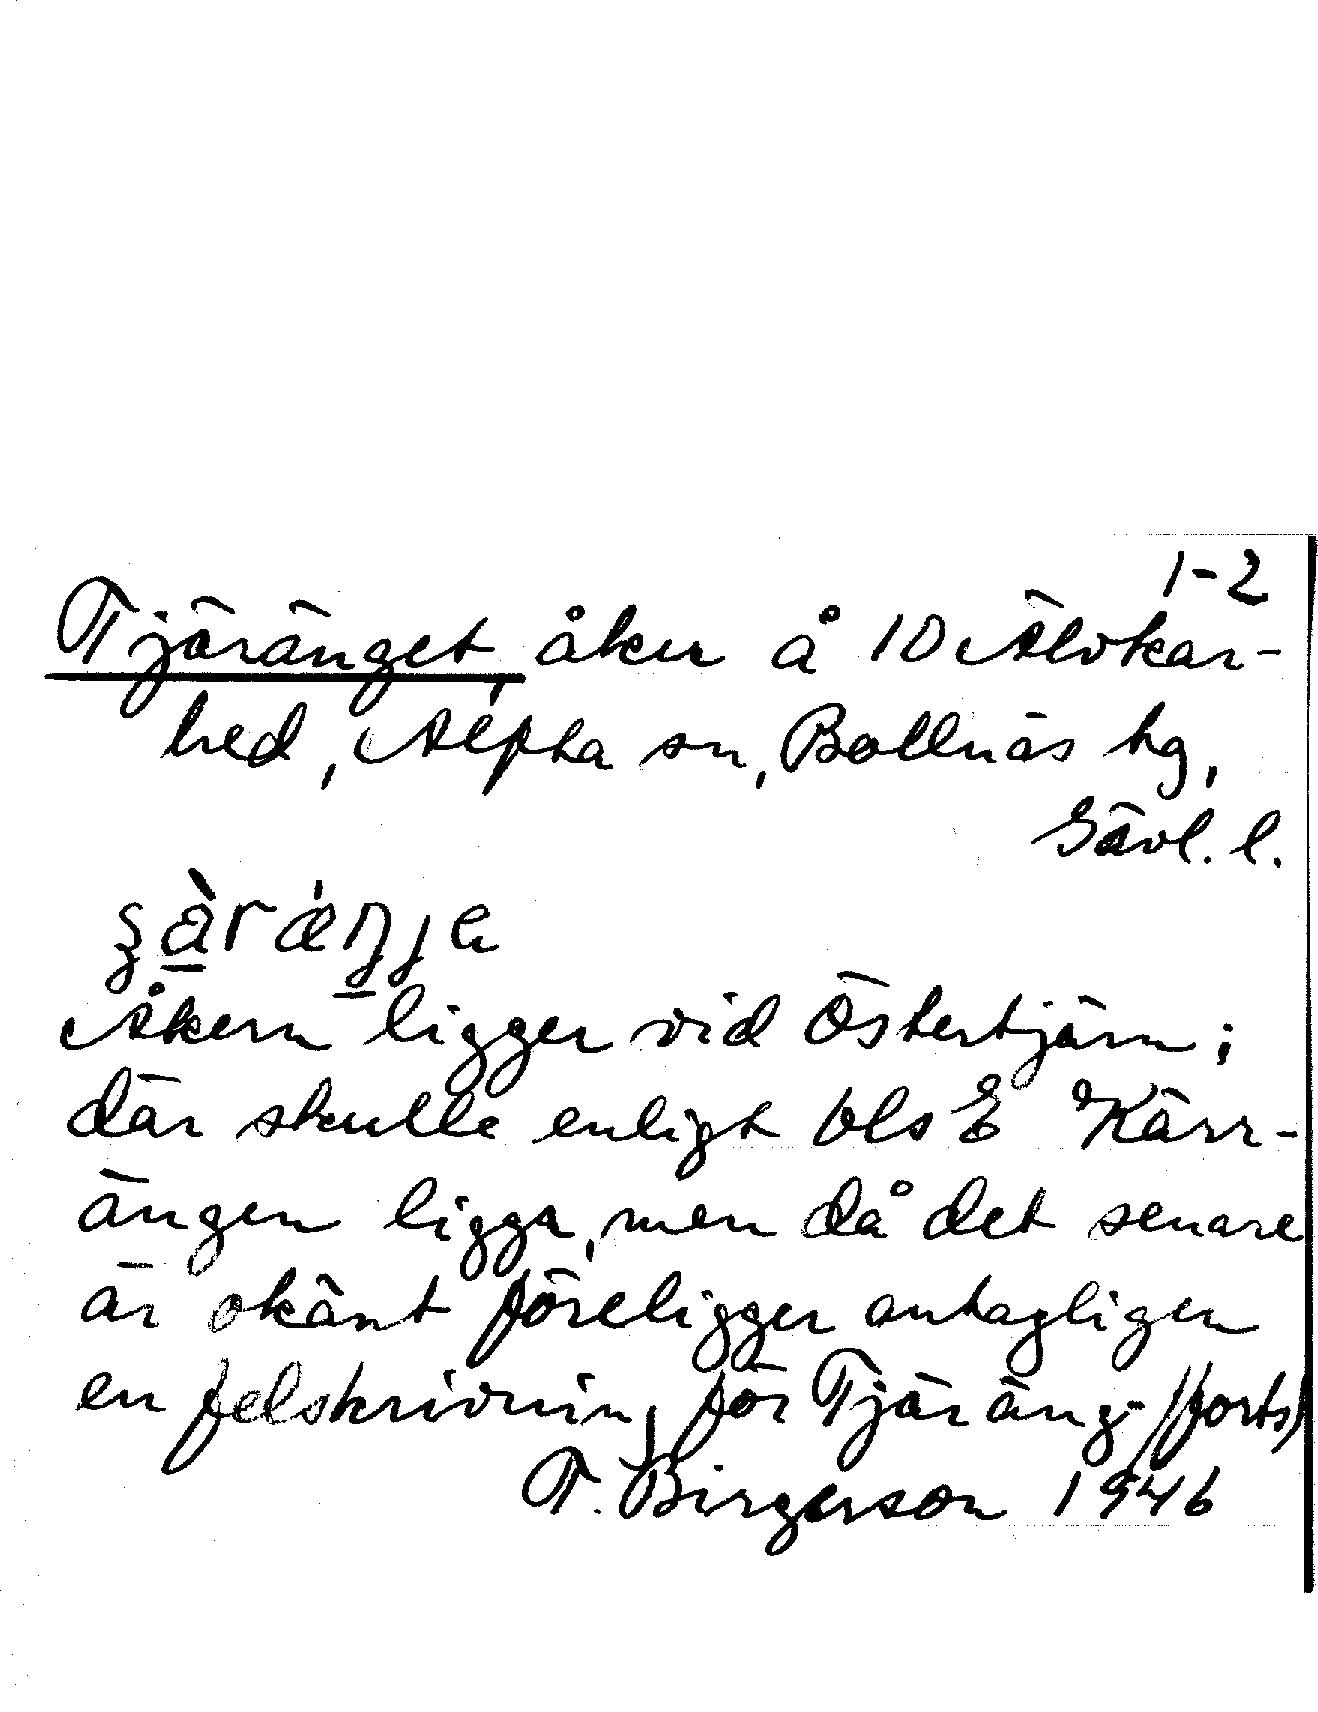 1-2
Tjäränget, åker å 10 Älvkar-
hed, Alfta sn, Bollnäs hg,
Gävl. l.
Åkern ligger vid Östertjärn;
där skulle enligt bls E Kärr-
ängen ligga, men då det senare
är okänt föreligger antagligen
en felskrivning för Tjäräng- /forts/
T. Birgerson 1946